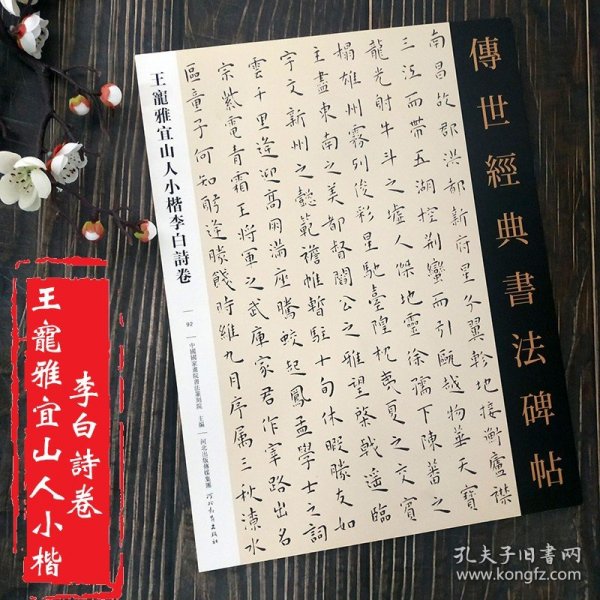 傳世經典書法碑帖
南昌故郡洪都新府星分翼軫地接衡廬襟
三江而帶五湖控荆蠻而引甌越物華天寶
龍光射牛斗之虛人傑地靈徐孺下陳蕃之
榻雄州霧列俊彩星馳臺隍枕夷夏之交賓
主盡東南之美都督閻公之雅望棨戟遥臨
宇文新州之懿範襜帷暫駐十旬休暇勝友如
雲千里逢迎高朋滿座騰蛟起鳳孟學士之詞
宗紫電青霜王將軍之武庫家君作宰路出名
區童子何知躬逢勝餞時維九月序屬三秋潦水
王寵雅宜山人小楷李白詩卷
92
中國國家畫院書法篆刻院 主編
河北出版傳媒集團 河北教育出版社
李白詩卷
王寵雅宜山人小楷
孔夫子旧書网
www.kongfz.com